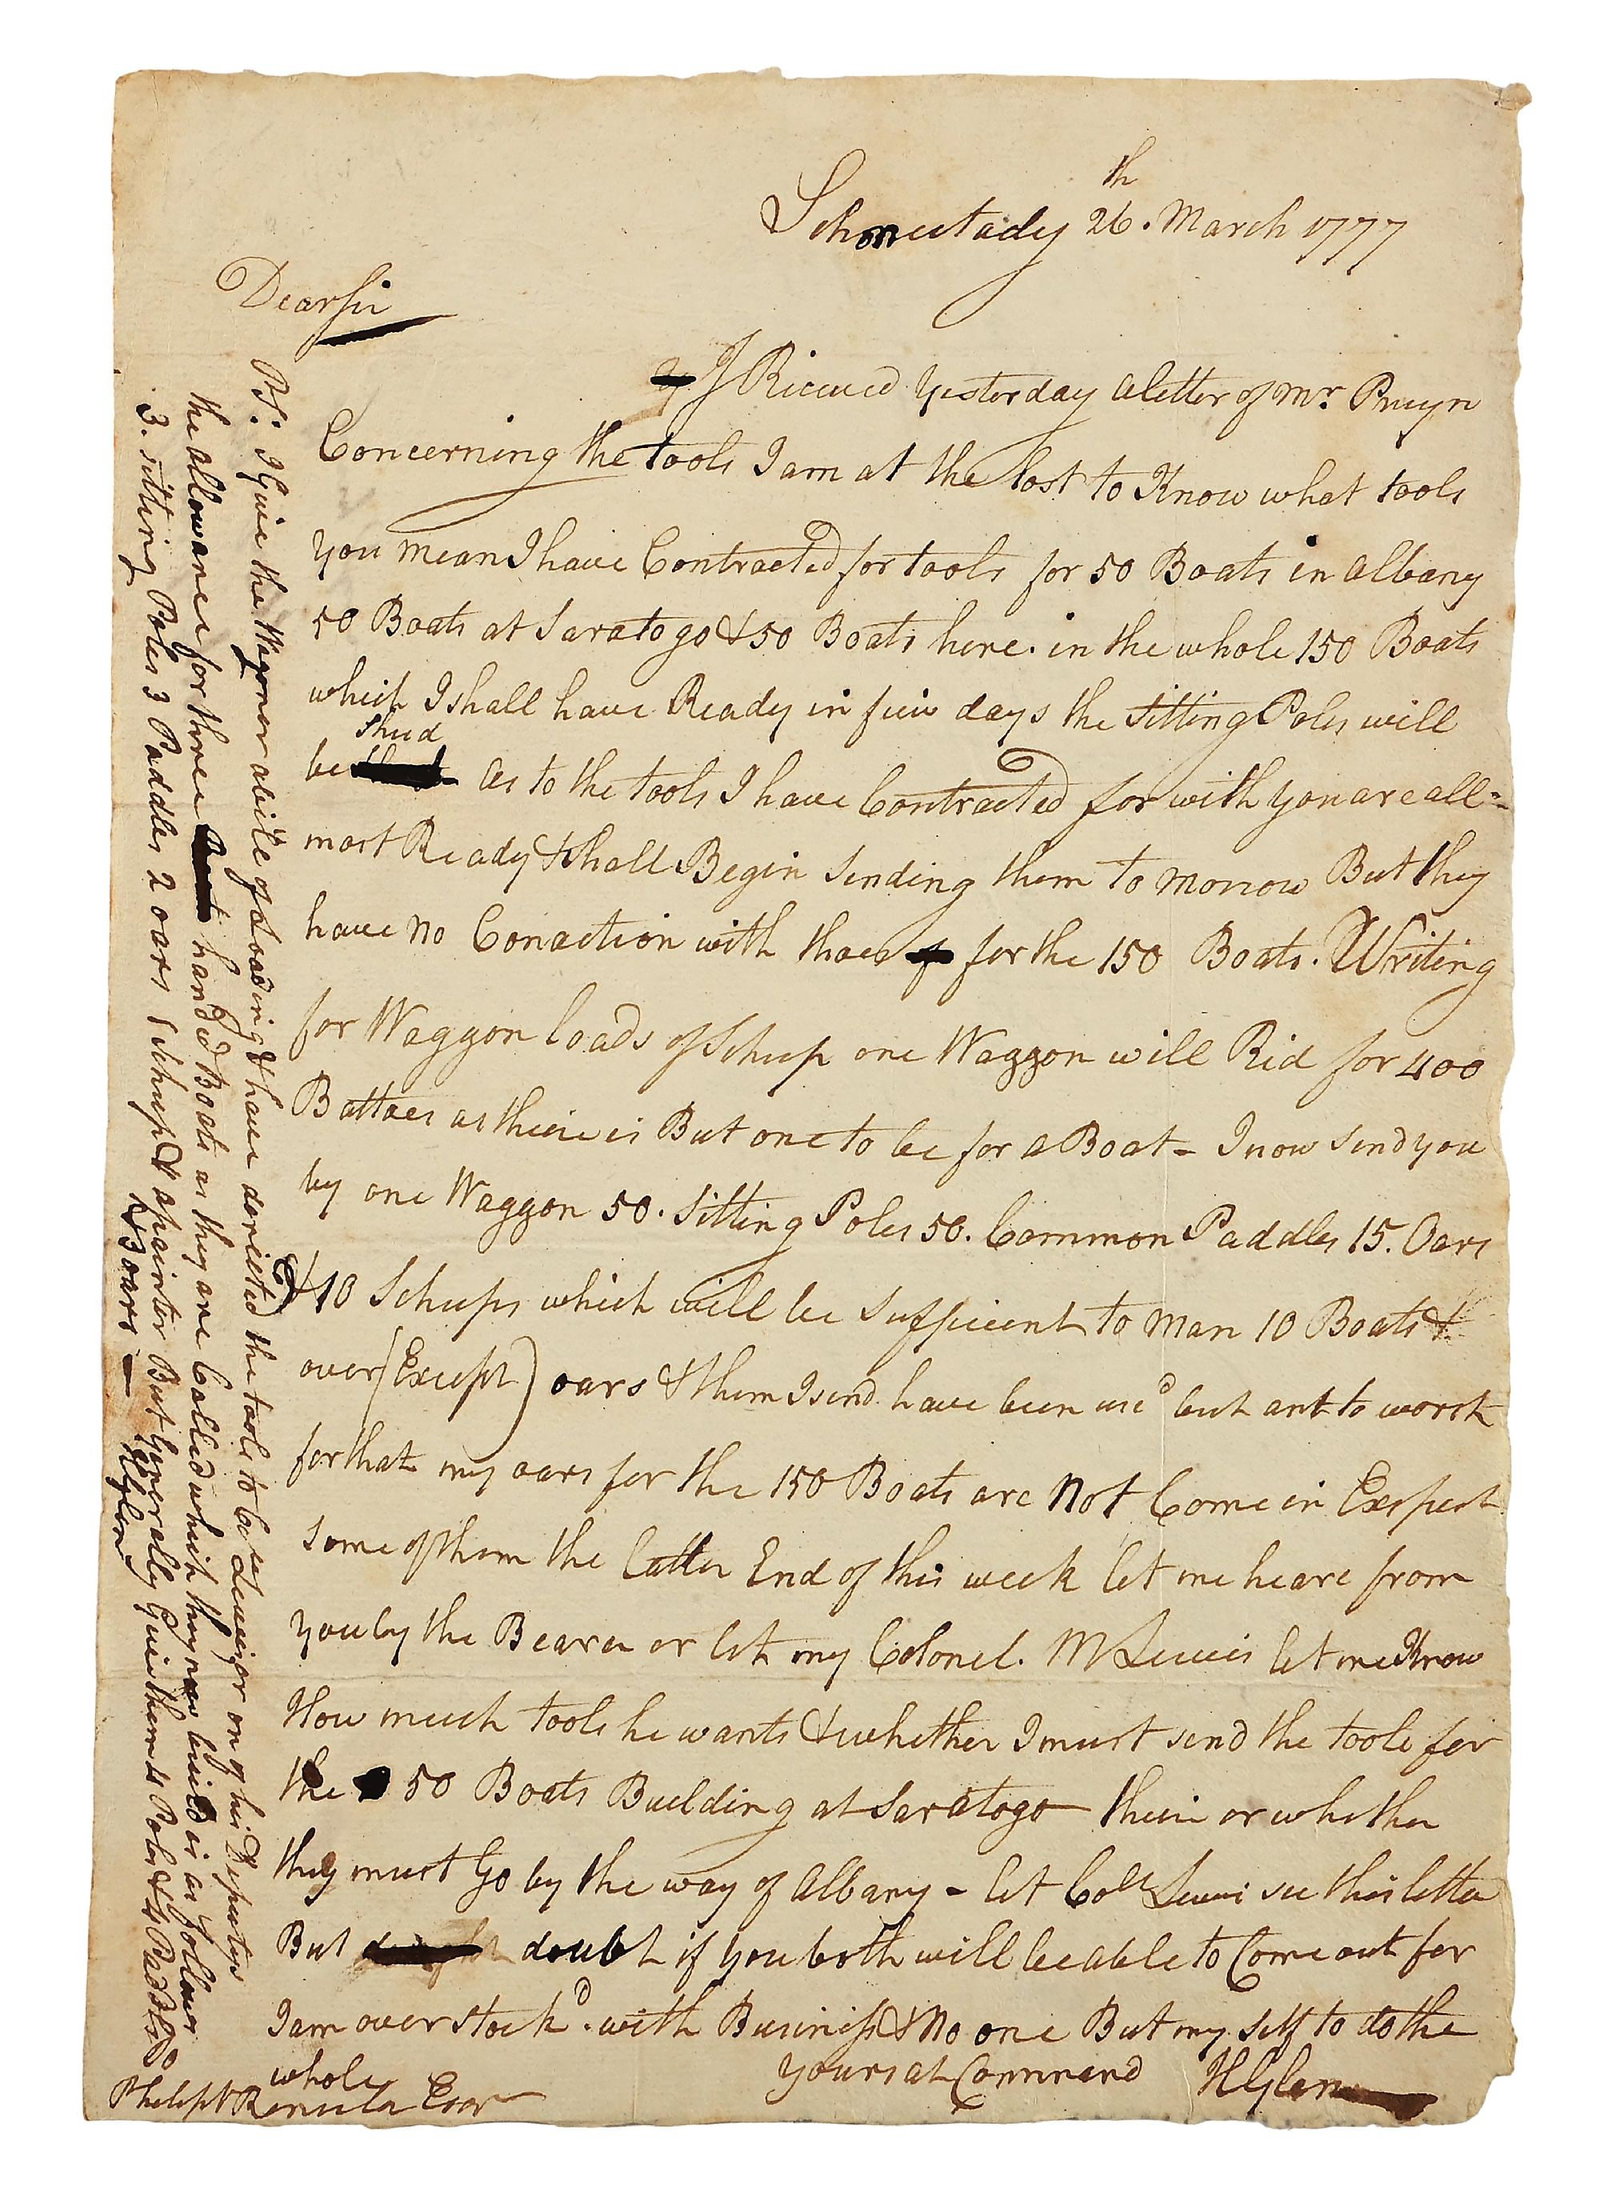 Schonectady 26.th March 1777
Dear Sir
I Riceived yesterday a letter of Mr. Pruyn
Concerning the tools I am at the lost to Know what tools
you mean I have Contracted for tools for 50 Boats in Albany
50 Boats at Saratogo & 50 Boats here. in the whole 150 Boats
which I shall have Ready in fiew days the sitting Poles will
be shud as to the tools I have Contracted for with you are all=
most Ready & shall Begin sending them to morrow But they
have no Conaction with those for the 150 Boats. Writing
for Waggon loads of Schup one Waggon will Rid for 400
Battoes as theire is But one to be for a Boat - I now send you
by one Waggon 50. sitting Poles 50. Common Paddles 15. Oars
& 10 Schups which will be suffiecent to man 10 Boats &
over (Except) oars & them I send have been usd but ant to worst
for that my oars for the 150 Boats are Not Come in Exspect
some of them the latter End of this week let me heare from
you by the Bearer or let my Colonel. M Lewis let me Know
How much tools he wants & whether I must send the tools for
the 50 Boats Building at Saratogo theire or whether
they must Go by the way of Albany - let Coll Lewis see this letter
But doubt if you both will be able to Come out for
I am over stockd. with Business & No one But my self to do the
whole
yours at Command HGlen
Philip V Rensela Esqr
PS: I Give the Wagoner a bill of Loading & have derected the tools to be Lewis or on of his Deputys
the allowance for three handed Boats as they are Called which they now build is as follows
3. sitting Poles 3 Paddles 2 oars 1 Schup & a painter But Generally Give them 4 Poles & 4 Paddles
& 3 oars — HGlen